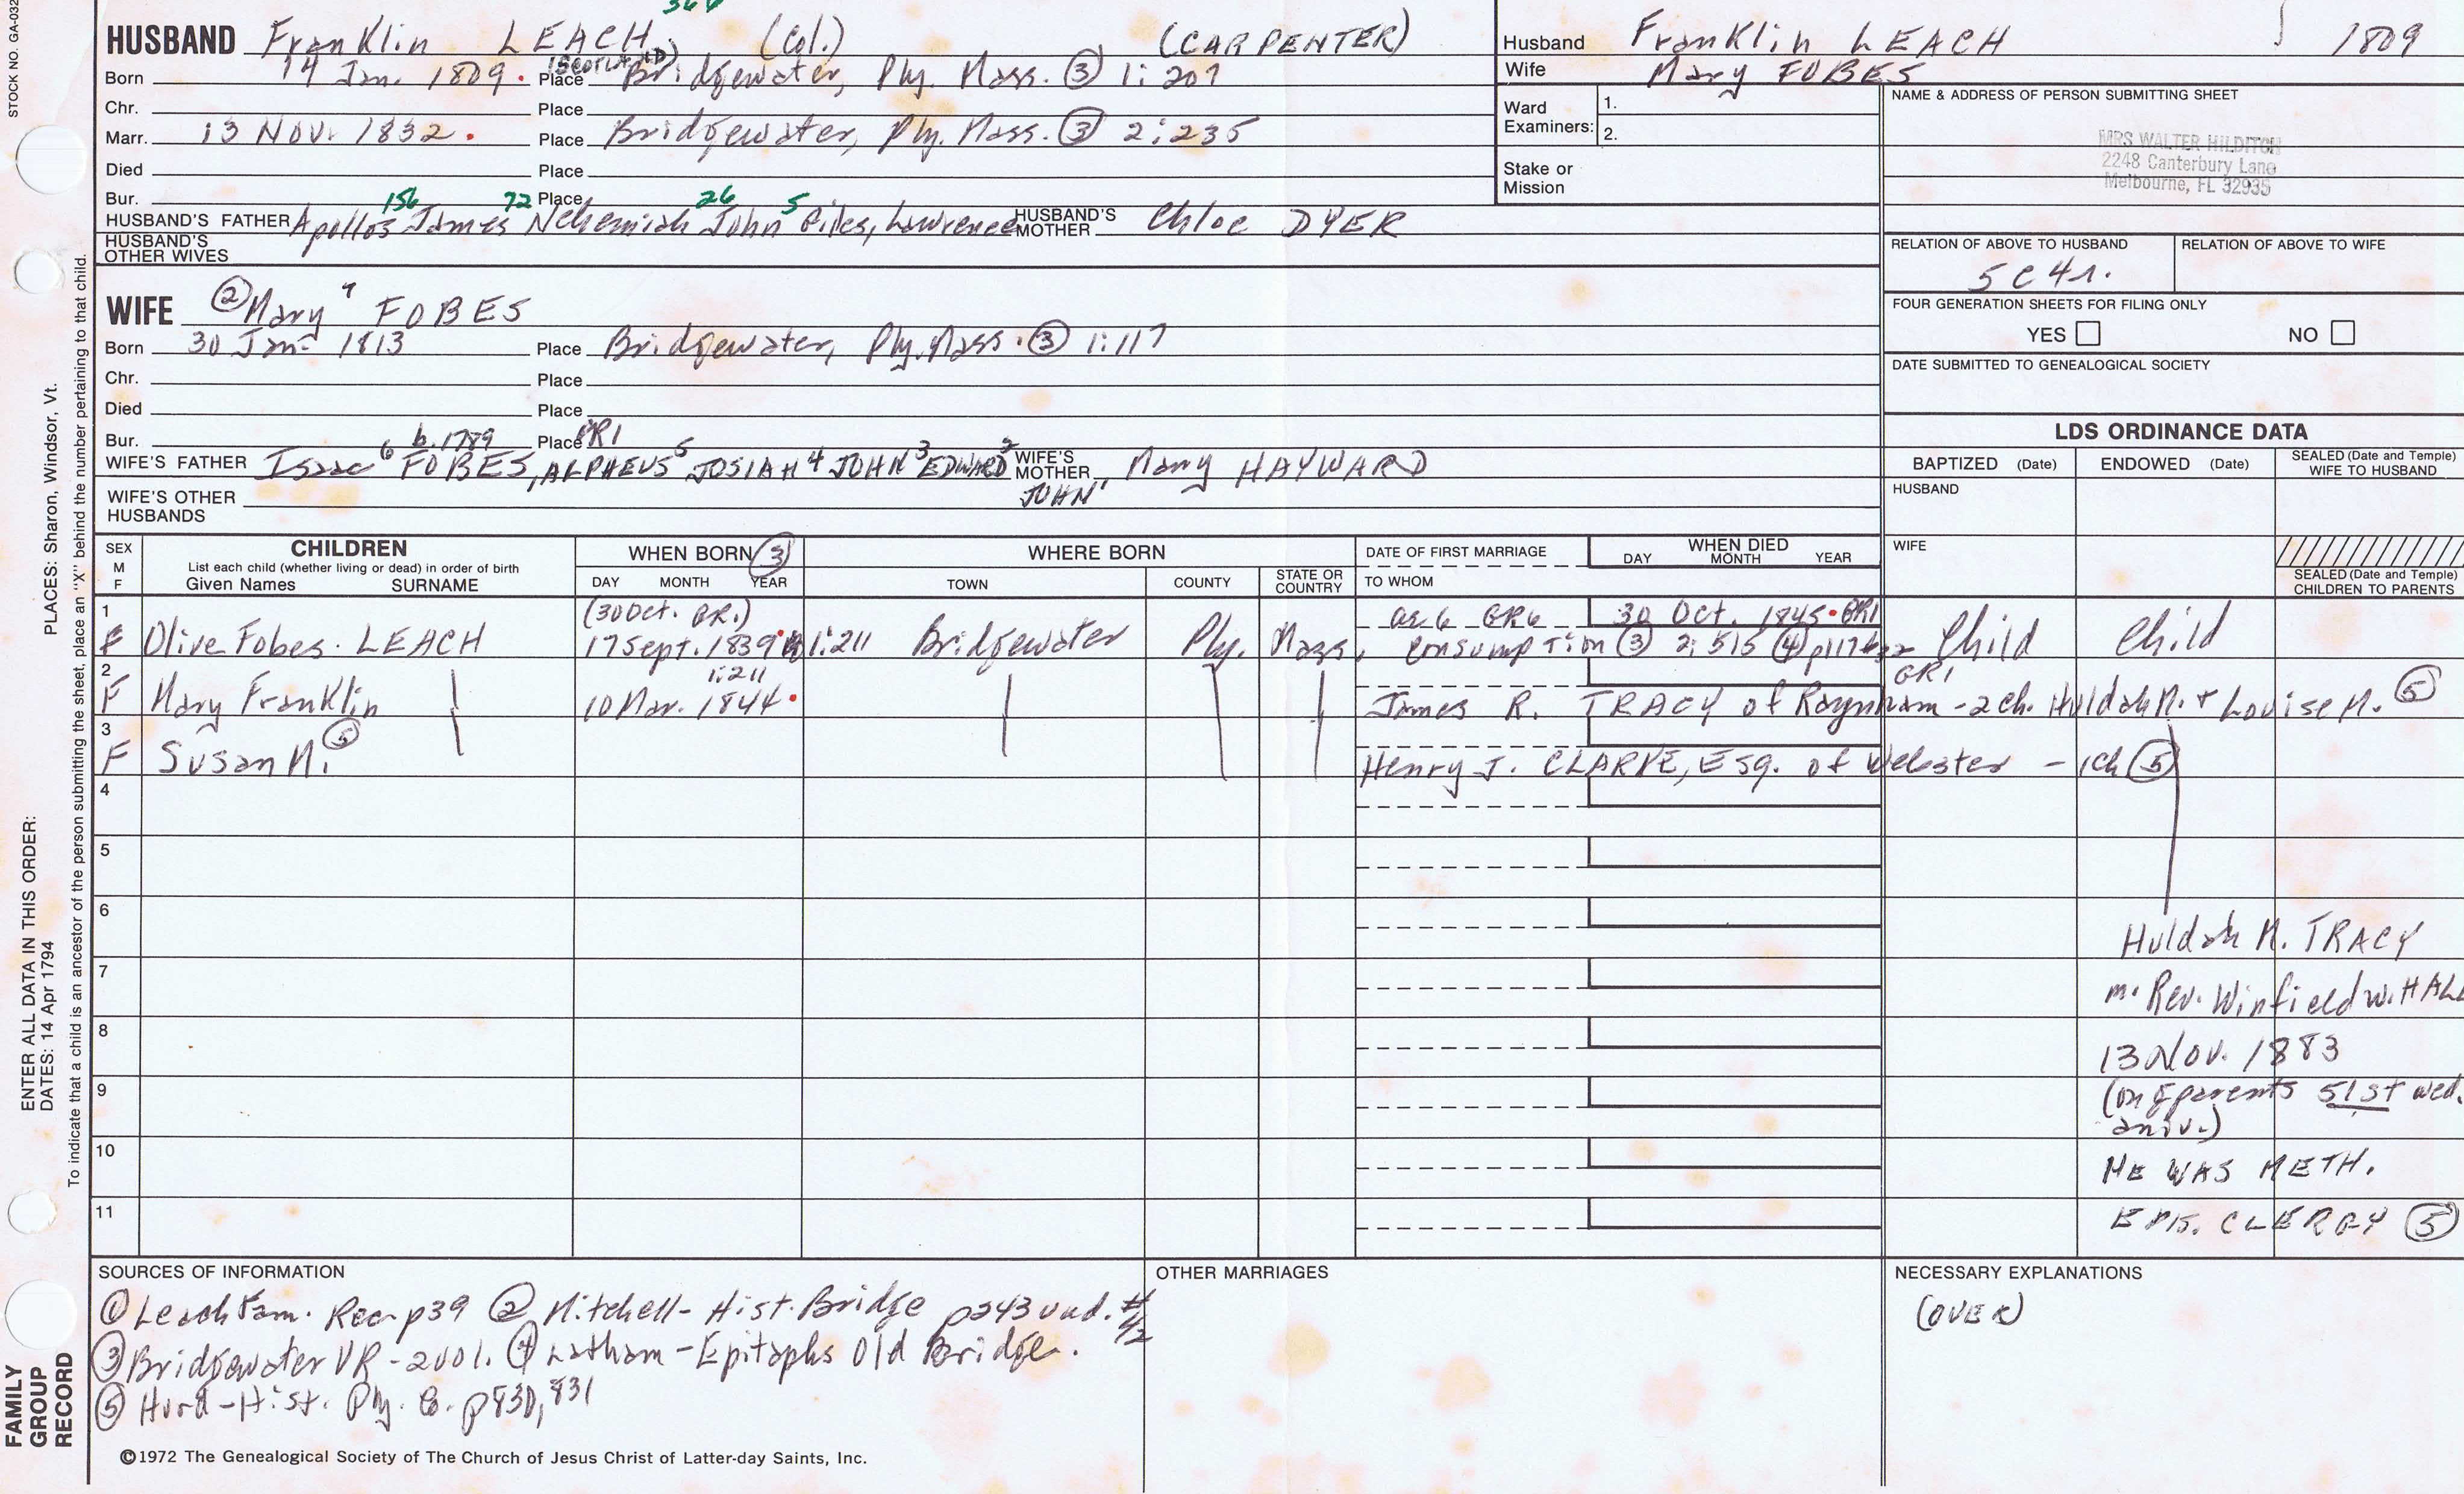 STOCK NO. GA-032
364
HUSBAND Franklin LEACH (Col.) (CARPENTER)
Born 14 Jan. 1809. Place (SCOTLAND) Bridgewater, Ply. Mass. ③ 1:207
Chr. Place
Marr. 13 Nov. 1832. Place Bridgewater, Ply. Mass. ③ 2:235
Died Place
Bur. Place
156 72 26 5
HUSBAND'S FATHER Apollos James Nehemiah John Giles, Lawrence HUSBAND'S MOTHER Chloe DYER
HUSBAND'S OTHER WIVES
WIFE ② Mary 7 FOBES
Born 30 Jan 1813 Place Bridgewater, Ply. Mass. ③ 1:117
Chr. Place
Died Place
Bur. b. 1789 Place GR1
WIFE'S FATHER Isaac 6 FOBES, ALPHEUS 5 JOSIAH 4 JOHN 3 EDWARD 2 JOHN 1 WIFE'S MOTHER Mary HAYWARD
WIFE'S OTHER HUSBANDS
Husband Franklin LEACH 1809
Wife Mary FOBES
Ward Examiners: 1.
2.
Stake or Mission
NAME & ADDRESS OF PERSON SUBMITTING SHEET
MRS WALTER HILDITCH
2248 Canterbury Lane
Melbourne, FL 32935
RELATION OF ABOVE TO HUSBAND RELATION OF ABOVE TO WIFE
5C4r.
FOUR GENERATION SHEETS FOR FILING ONLY
YES NO
DATE SUBMITTED TO GENEALOGICAL SOCIETY
LDS ORDINANCE DATA
BAPTIZED (Date) ENDOWED (Date) SEALED (Date and Temple) WIFE TO HUSBAND
HUSBAND
WIFE
SEALED (Date and Temple) CHILDREN TO PARENTS
SEX M F
CHILDREN
List each child (whether living or dead) in order of birth
Given Names SURNAME
WHEN BORN ③
DAY MONTH YEAR
WHERE BORN
TOWN COUNTY STATE OR COUNTRY
DATE OF FIRST MARRIAGE
TO WHOM
WHEN DIED
DAY MONTH YEAR
1 (30 Oct. GR.) ae 6 GR6 30 Oct. 1845. GR1
F Olive Fobes. LEACH 17 Sept. 1839 1:211 Bridgewater Ply. Mass. Consumption ③ 2:515 ④ p117 Child Child
2 1:211 GR1
F Mary Franklin 10 Mar. 1844. James R. TRACY of Raynham - 2 ch. Huldah M. + Louise M. ⑤
3
F Susan M. ⑤ Henry J. CLARKE, Esq. of Webster - 1ch ⑤
4
5
6
7
8
9
10
11
Huldah M. TRACY
m. Rev. Winfield W. HALL
13 Nov. 1883
(on gparents 51st wed.
aniv.)
HE WAS METH.
EPIS. CLERGY ⑤
SOURCES OF INFORMATION
① Leach Fam. Rec. p39 ② Mitchell - Hist. Bridge p243 und. #/2
③ Bridgewater VR - 2 vol. ④ Latham - Epitaphs Old Bridge.
⑤ Hurd - Hist. Ply. Co. p830, 831
OTHER MARRIAGES
NECESSARY EXPLANATIONS
(OVER)
©1972 The Genealogical Society of The Church of Jesus Christ of Latter-day Saints, Inc.
PLACES: Sharon, Windsor, Vt.
ENTER ALL DATA IN THIS ORDER:
DATES: 14 Apr 1794
To indicate that a child is an ancestor of the person submitting the sheet, place an "X" behind the number pertaining to that child.
FAMILY GROUP RECORD